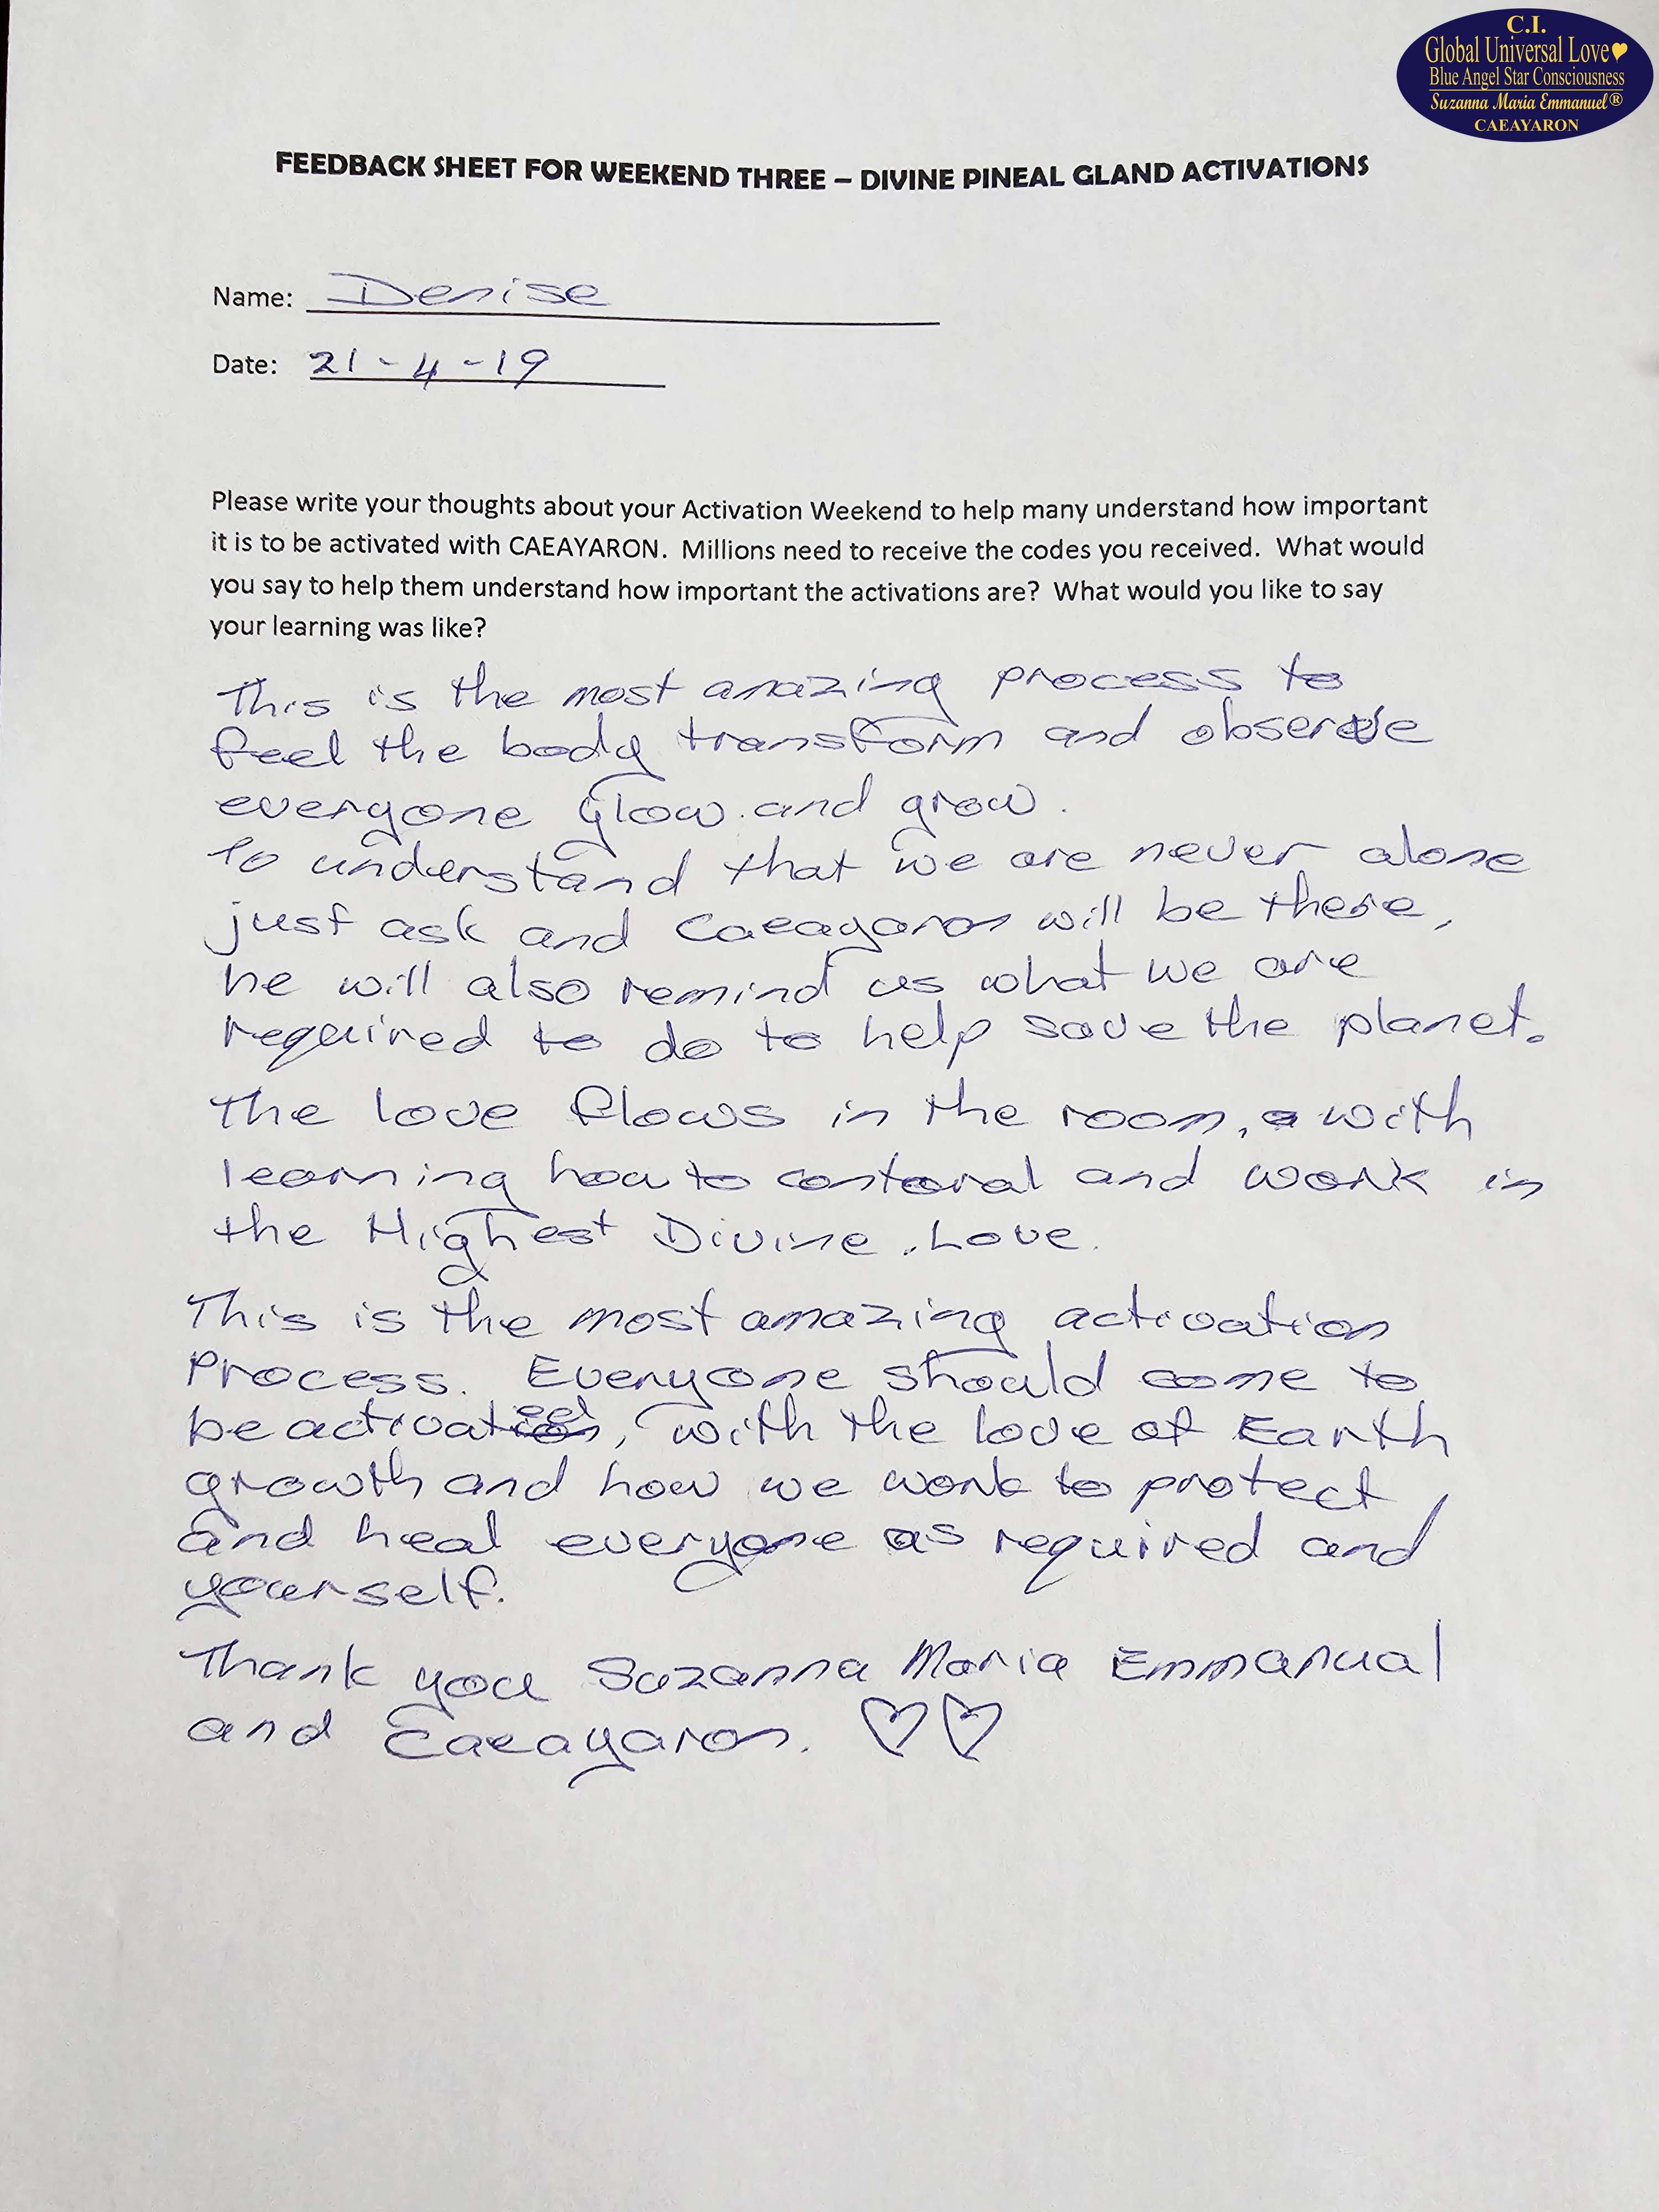 C.I.
Global Universal Love
Blue Angel Star Consciousness
Suzanna Maria Emmanuel®
CAEAYARON
FEEDBACK SHEET FOR WEEKEND THREE – DIVINE PINEAL GLAND ACTIVATIONS
Name: Denise
Date: 21-4-19
Please write your thoughts about your Activation Weekend to help many understand how important
it is to be activated with CAEAYARON. Millions need to receive the codes you received. What would
you say to help them understand how important the activations are? What would you like to say
your learning was like?
This is the most amazing process to
feel the body transform and observe
everyone Glow and grow.
To understand that we are never alone
just ask and Caeayaron will be there,
he will also remind us what we are
required to do to help save the planet.
The love flows in the room, with
learning how to and work in
the Highest Divine Love.
This is the most amazing activation
Process. Everyone should come to
be activated, with the love of Earth
growth and how we work to protect,
and heal everyone as required and
yourself.
Thank you Suzanna Maria Emmanual
and Caeayaron. ♡♡